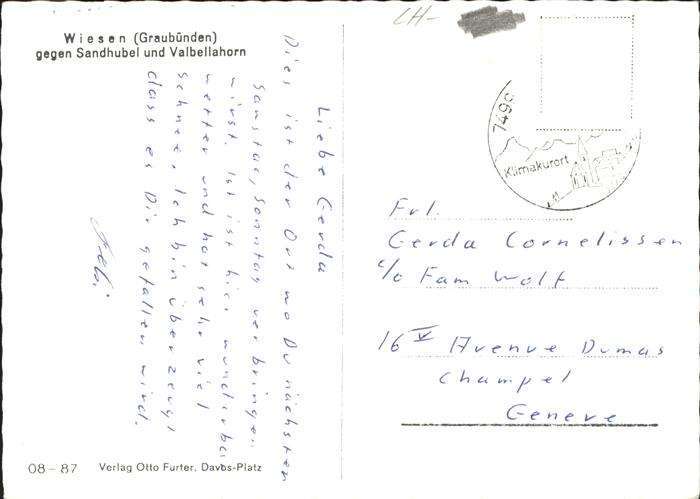 Wiesen (Graubünden)
gegen Sandhubel und Valbellahorn
Liebe Gerda
Dies ist der Ort wo Du nächsten
Samstag, Sonntag verbringen
wirst. Ist hier wunderba
wetter und hat sehr viel
Schnee. Ich bin überzeugt
dass es Dir gefallen wird.
08-87 Verlag Otto Furter, Davos-Platz
CH-
7499
Klimakurort
Frl.
Gerda Cornelissen
c/o Fam Wolf
16 V Avenue Dumas
Champel
Geneve